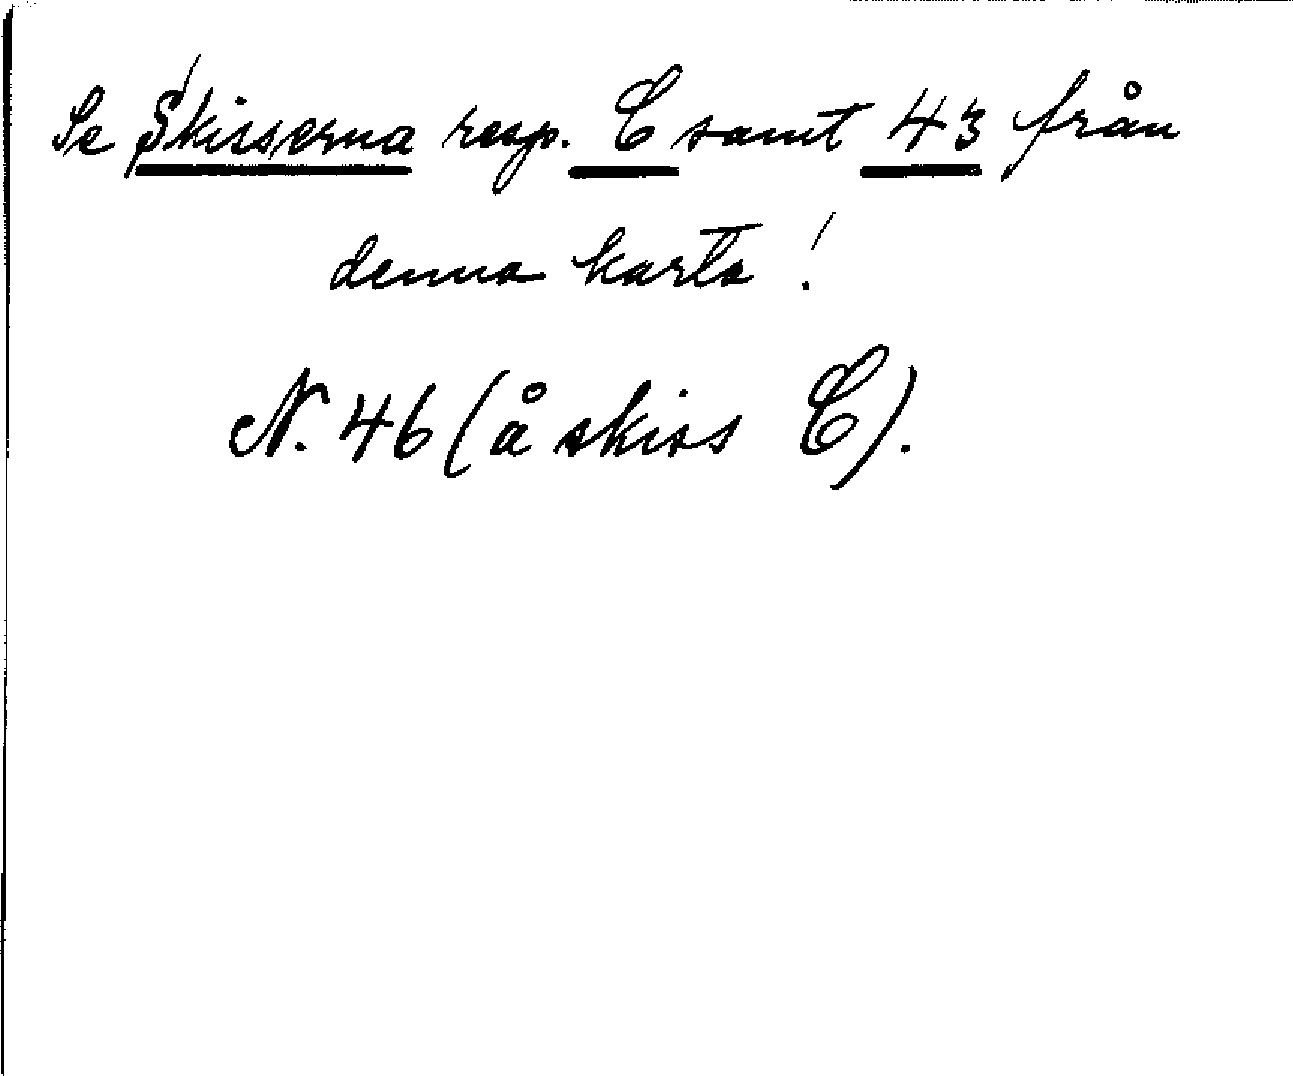 Se Skisserna resp. C samt 43 från
denna karta!
N. 46 (å skiss C).